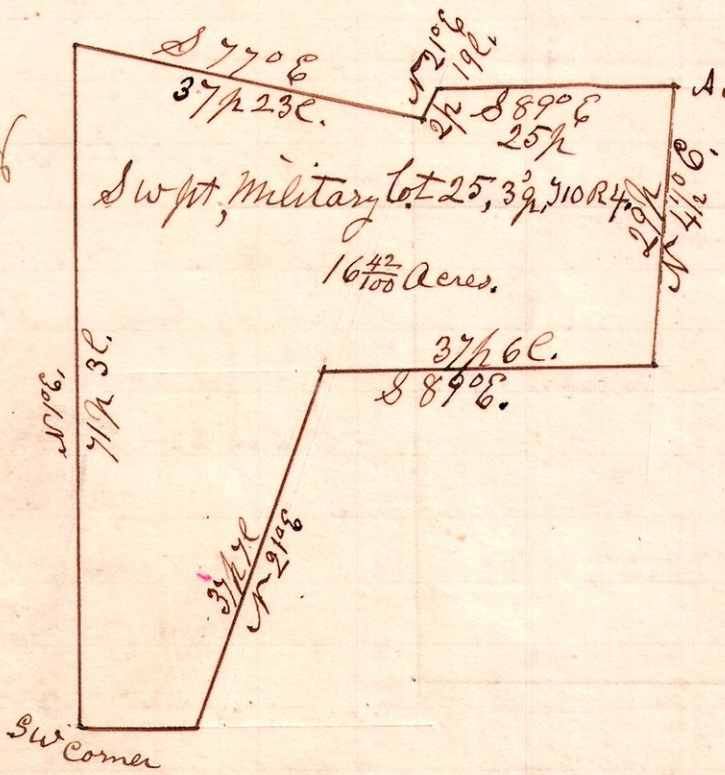 S 77° E
37p 23l.
N 21° E
2p 19l.
S 89° E
25p
A.
Sw pt, Military Lot 25, 3d q, T10 R4.
29p
N 4 1/2° E.
16 42/100 Acres.
37p 6l.
S 89° E.
N 1° E.
71p 3l.
37p 7l
N 21° E
SW Corner